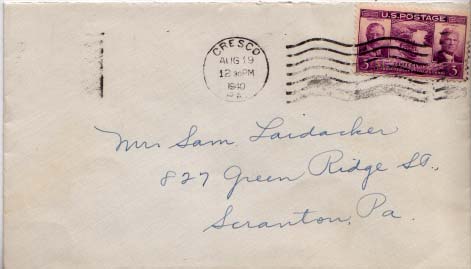 CRESCO
AUG 19
12 30 PM
1940
PA.
U.S. POSTAGE
3 3
Mrs Sam Laidacker
827 Green Ridge St.,
Scranton, Pa.